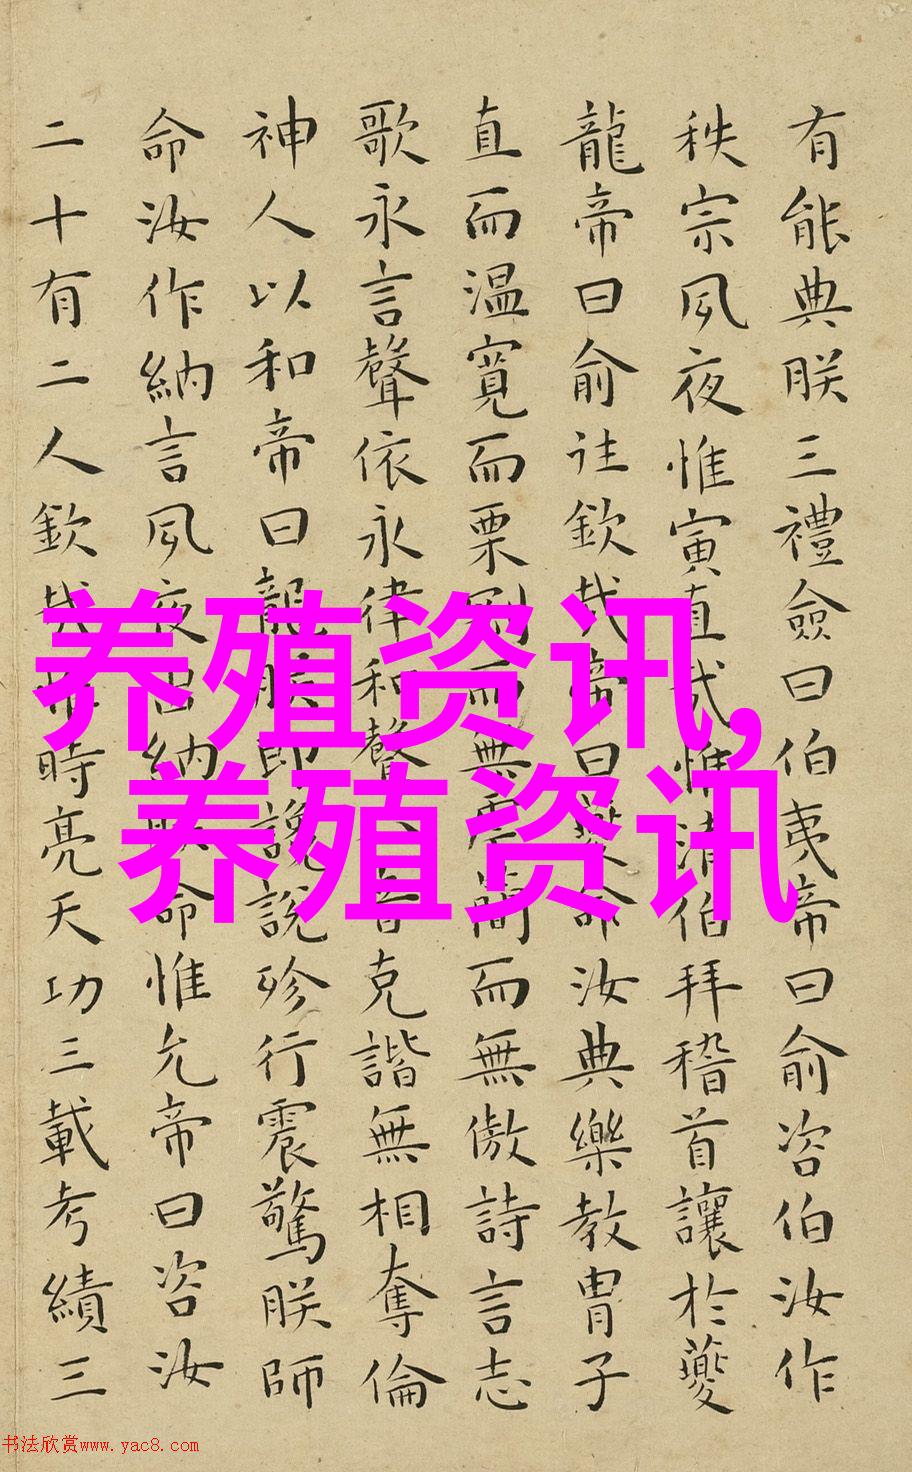 有能典朕三禮僉曰伯夷帝曰俞咨伯汝作
秩宗夙夜惟寅直哉惟清伯拜稽首讓於夔
龍帝曰俞往欽哉帝曰夔命汝典樂教胄子
直而温寬而栗剛而無虐簡而無傲詩言志
歌永言聲依永律和聲音克諧無相奪倫
神人以和帝曰龍朕堲讒說殄行震驚朕師
命汝作納言夙夜出納朕命惟允帝曰咨汝
二十有二人欽哉惟時亮天功三載考績三
养殖资讯,
养殖资讯
书法欣赏www.yac8.com